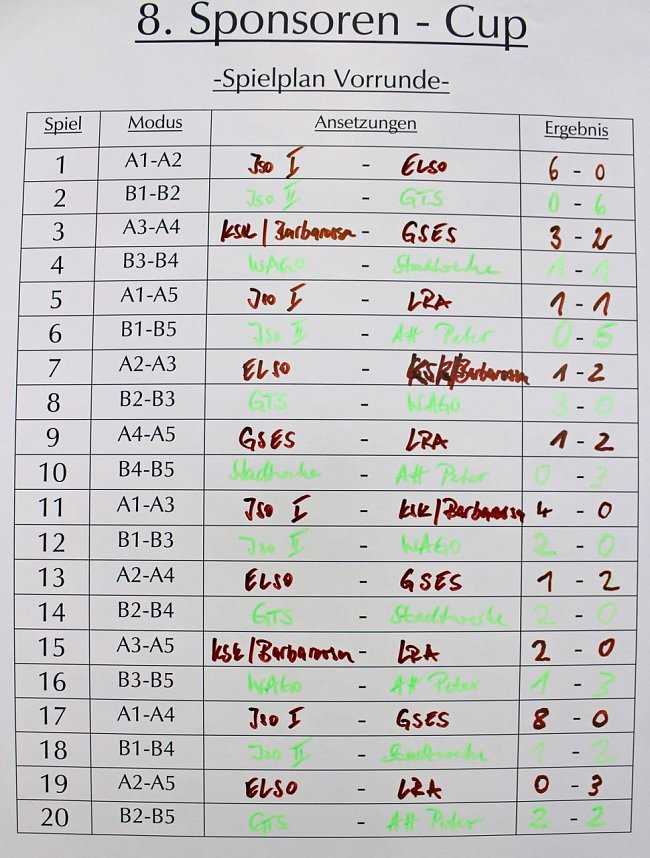 8. Sponsoren - Cup
-Spielplan Vorrunde-
Spiel Modus Ansetzungen Ergebnis
1 A1-A2 Iso I - ELSO 6 - 0
2 B1-B2 Iso II - GTS 0 - 6
3 A3-A4 KSK/Barbarossa - GSES 3 - 2
4 B3-B4 WAGO - Stadtwerke 1 - 1
5 A1-A5 Iso I - LRA 1 - 1
6 B1-B5 Iso II - AH Peter 0 - 5
7 A2-A3 ELSO - KSK/Barbarossa 1 - 2
8 B2-B3 GTS - WAGO 3 - 0
9 A4-A5 GSES - LRA 1 - 2
10 B4-B5 Stadtwerke - AH Peter 0 - 3
11 A1-A3 Iso I - KSK/Barbarossa 4 - 0
12 B1-B3 Iso II - WAGO 2 - 0
13 A2-A4 ELSO - GSES 1 - 2
14 B2-B4 GTS - Stadtwerke 2 - 0
15 A3-A5 KSK/Barbarossa - LRA 2 - 0
16 B3-B5 WAGO - AH Peter 1 - 3
17 A1-A4 Iso I - GSES 8 - 0
18 B1-B4 Iso II - Stadtwerke 1 - 2
19 A2-A5 ELSO - LRA 0 - 3
20 B2-B5 GTS - AH Peter 2 - 2